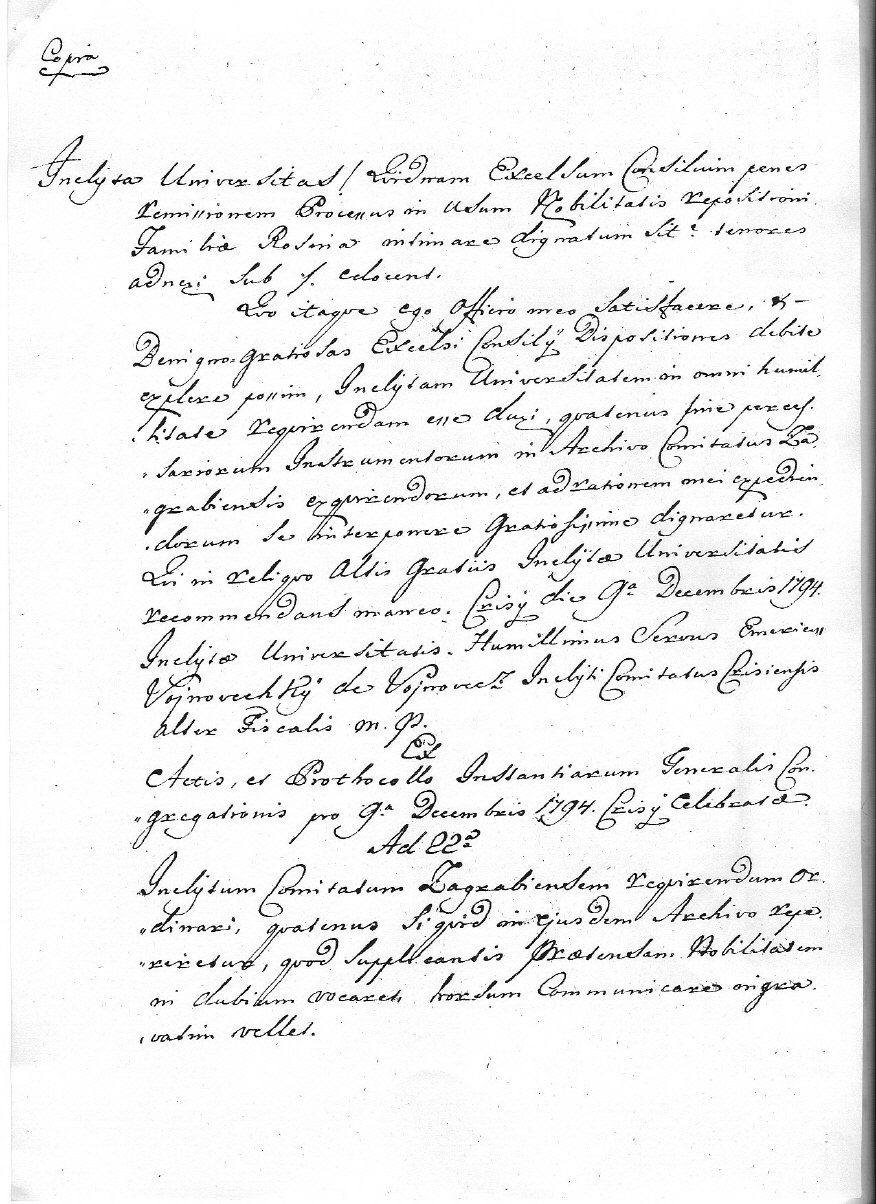 Copia
Inclyta Universitas! Quidnam Excelsum Consilium penes
remissionem Processus in Usum Nobilitatis repositioni
Familiæ Rosina intimare dignatum sit: tenores
adnexi sub ./. edocent.
Quo itaque ego Officio meo satisfacere, &
Benigno-Gratiosas Excelsi Consilÿ Dispositiones debite
explere possim, Inclytam Universitatem in omni humil,
,litate requirendam esse duxi, quatenus sine perces,
"sariorum Instrumentorum in Archivo Comitatus Za
"grabiensis exquirendorum, et ad rationem mei expedien
,dorum se interponere Gratiosissime dignaretur.
Qui in reliquo Altis Gratiis Inclytæ Universitatis
recommendatus maneo. Crisÿ die 9a Decembris 1794.
Inclytæ Universitatis. Humillimus Servus Emericus
Vojnovechkÿ de Vojnovecz Inclyti Comitatus Crisiensis
alter Fiscalis m. p.
Ex
Actis, et Prothocollo Instantiarum Generalis Con,
"gregationis pro 9a Decembris 1794. Crisÿ Celebratæ.
Ad 22a
Inclytum Comitatum Zagrabiensem requirendum or,
"dinari, quatenus si quid in ejusdem Archivo repe,
"riretur, quod supplicantis Prætensam Nobilitatem
in dubium vocaret, horsum Communicare ingra,
,vatim vellet.